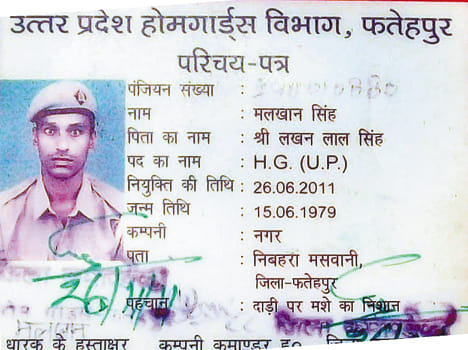 उत्तर प्रदेश होमगार्ड्स विभाग, फतेहपुर
परिचय-पत्र
पंजियन संख्या :
नाम : मलखान सिंह
पिता का नाम : श्री लखन लाल सिंह
पद का नाम : H.G. (U.P.)
नियुक्ति की तिथि : 26.06.2011
जन्म तिथि : 15.06.1979
कम्पनी : नगर
पता : निबहरा मसवानी,
जिला-फतेहपुर
पहचान : दाड़ी पर मशे का निशान
धारक के हस्ताक्षर कम्पनी कमाण्डर ह०